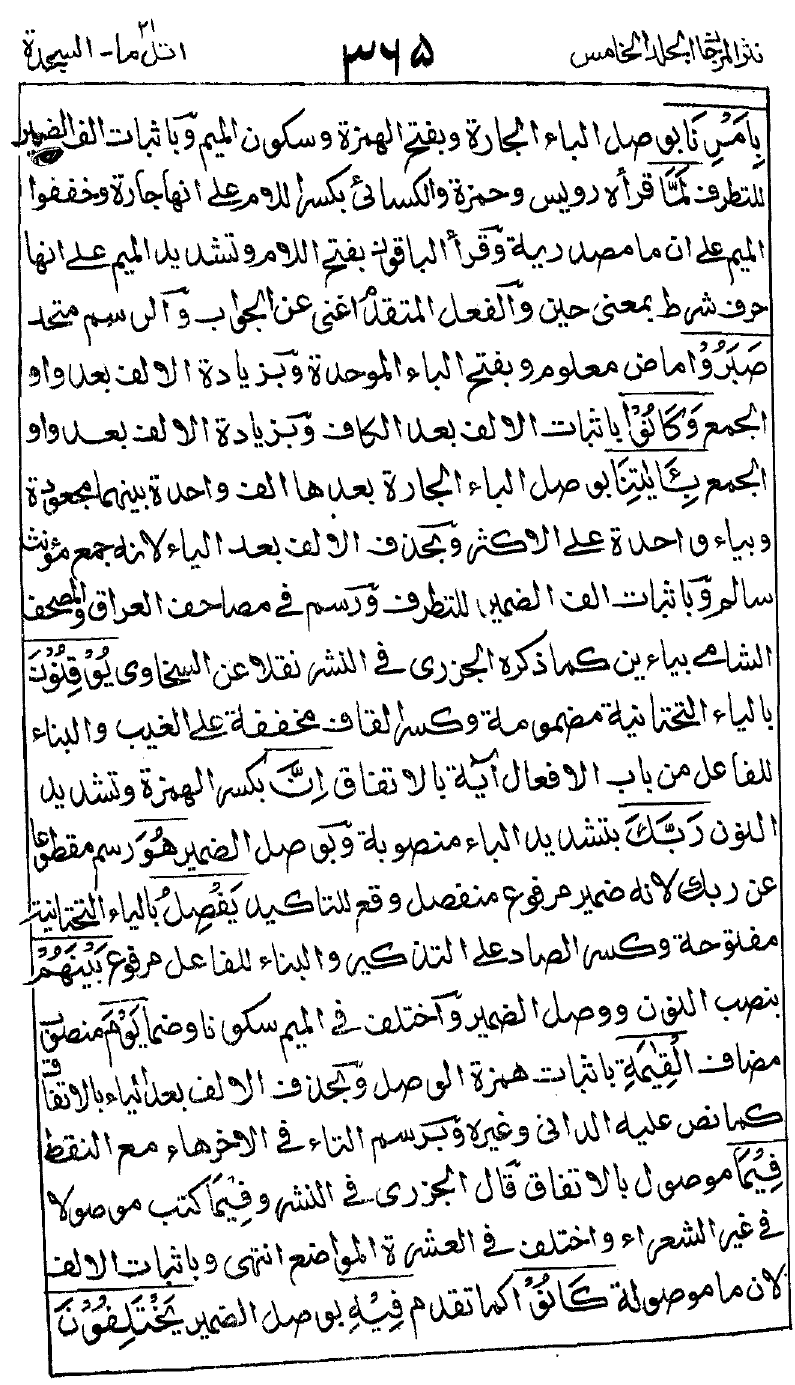 نثر المرجان المجلد الخامس ٣٦٥ اتل ما ٢١ - السجدة
بِاَمْرِنَا بوصل الباء الجارة وبفتح الهمزة وسكون الميم وباثبات الف الضمير
للتطرف لَمَّا قرأه رويس وحمزة والكسائي بكسر اللام على انها جارة وخففوا
الميم على ان ما مصدرية وقرأ الباقون بفتح اللام وتشديد الميم على انها
حرف شرط بمعنى حين والفعل المتقدم اغنى عن الجواب والرسم متحد
صَبَرُوْا ماض معلوم وبفتح الباء الموحدة وبزيادة الالف بعد واو
الجمع وَكَانُوْا باثبات الالف بعد الكاف وبزيادة الالف بعد واو
الجمع بِـَٔايٰتِنَا بوصل الباء الجارة بعدها الف واحدة بينهما مجعودة
وبياء واحدة على الاكثر وبحذف الالف بعد الياء لانه جمع مؤنث
سالم وباثبات الف الضمير للتطرف ورسم في مصاحف العراق والمصحف
الشامي بياءين كما ذكره الجزرى في النشر نقلا عن السخاوى يُوْقِنُوْنَ
بالياء التحتانية مضمومة وكسر القاف مخففة على الغيب والبناء
للفاعل من باب الافعال آية بالاتفاق اِنَّ بكسر الهمزة وتشديد
النون رَبَّكَ بتشديد الباء منصوبة وبوصل الضمير هُوَ رسم مقطوعا
عن ربك لانه ضمير مرفوع منفصل وقع للتاكيد يَفْصِلُ بالياء التحتانية
مفتوحة وكسر الصاد على التذكير والبناء للفاعل مرفوع بَيْنَهُمْ
بنصب النون ووصل الضمير واختلف في الميم سكونا وضما يَوْمَ منصوب
مضاف الْقِيٰمَةِ باثبات همزة الوصل وبحذف الالف بعد الياء بالاتفاق
كما نص عليه الدانى وغيره وبرسم التاء في الاخر هاء مع النقط
فِيْمَا موصول بالاتفاق قال الجزرى في النشر وفِيْمَا كتب موصولا
في غير الشعراء واختلف في العشرة المواضع انتهى وباثبات الالف
لان ما موصولة كَانُوْا كما تقدم فِيْهِ بوصل الضمير يَخْتَلِفُوْنَ